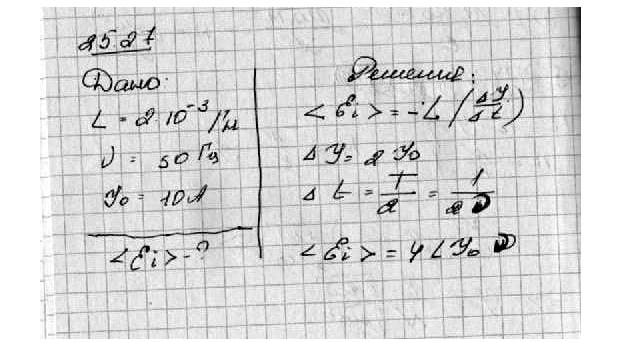 25.27
Дано:
L = 2·10⁻³ Гн
ν = 50 Гц
I₀ = 10 А
<Ɛi> - ?
Решение:
<Ɛi> = -L (ΔI/Δt)
ΔI = 2 I₀
Δt = T/2 = 1/2ν
<Ɛi> = 4 L I₀ ν